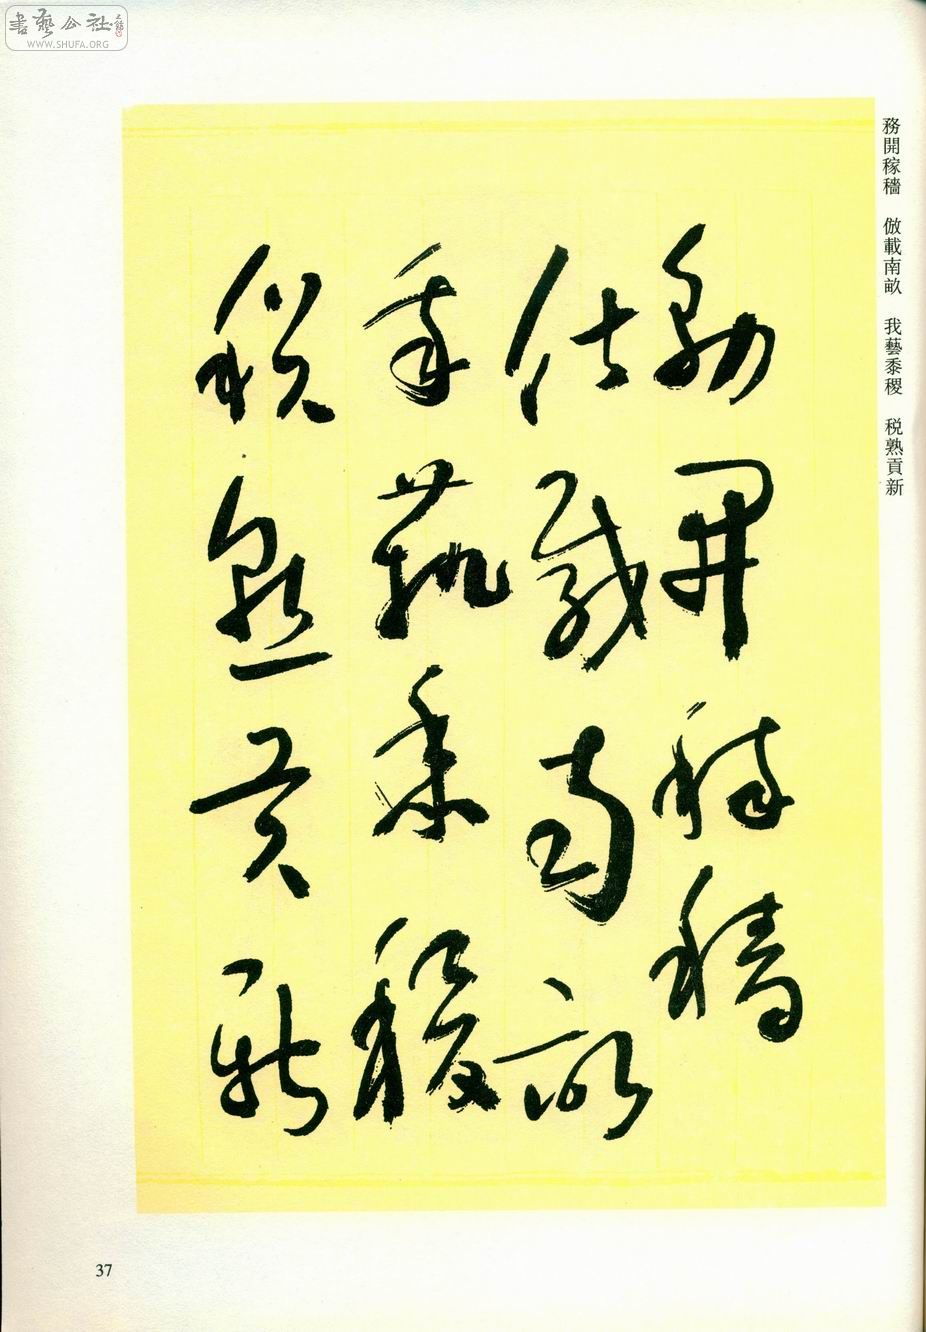 書藝公社
WWW.SHUFA.ORG
務開稼穡　倣載南畝　我藝黍稷　税熟貢新
務開稼穡
俶載南畝
我藝黍稷
税熟貢新
37